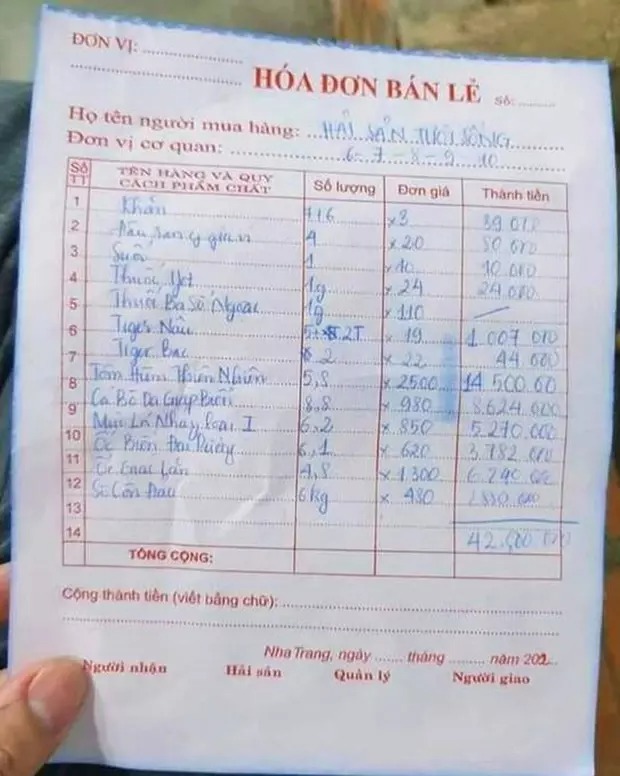 ĐƠN VỊ: ........................
........................................
HÓA ĐƠN BÁN LẺ Số: ..........
Họ tên người mua hàng: HẢI SẢN TƯƠI SỐNG
Đơn vị cơ quan: 6-7-8-9-10
Số TT TÊN HÀNG VÀ QUY CÁCH PHẨM CHẤT Số lượng Đơn giá Thành tiền
1 Khăn x3
2 4 x20
3 Suối 1 x10 10 000
4 Thuốc 1g x24 24 000
5 Thuốc Ba Số Ngoại 1g x110
6 Tiger Nâu 2T x19 1 007 000
7 Tiger Bạc 2 x22 44 000
Tôm Hùm Thiên Nhiên 5,8 x2500 14 500.00
8 Cá Bò Da Giáp Biển 8,8 x980 8.624.000
9 Mực Lá Nháy Loại I 6,2 x850 5.270.000
10 Ốc Biển 6,1 x620 3.782.000
11 Ốc 4,8 x1.300 6.240.000
12 Sò Côn Đảo 6kg x480
13
14 000
TỔNG CỘNG:
Cộng thành tiền (viết bằng chữ): ........................
........................................
Nha Trang, ngày ....... tháng ......... năm 202...
Người nhận Hải sản Quản lý Người giao